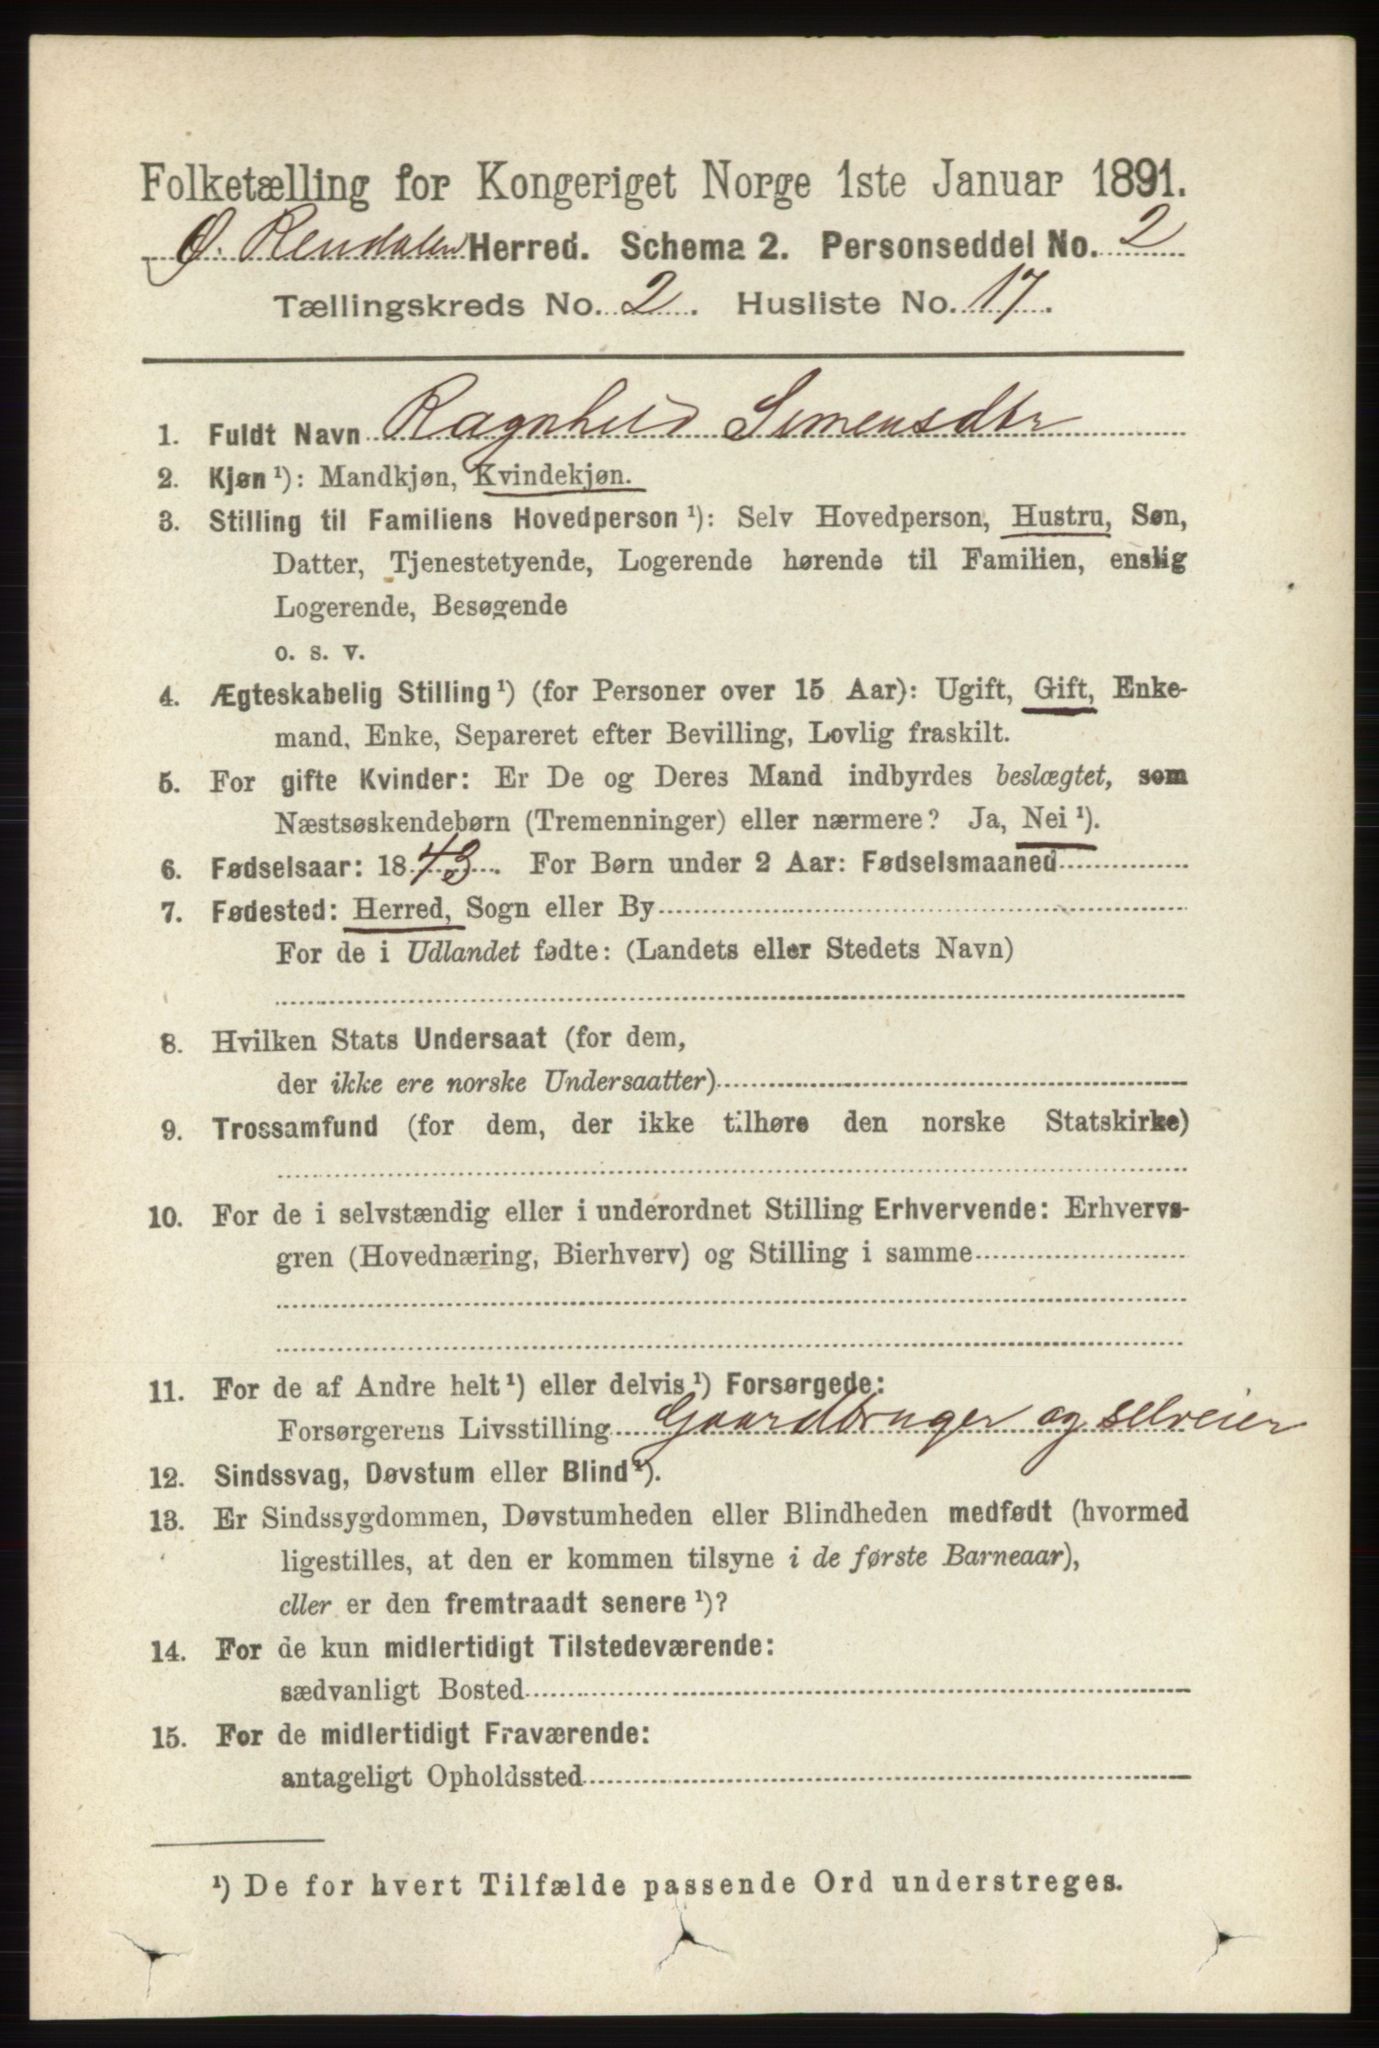 Folketælling for Kongeriget Norge 1ste Januar 1891.
Ø. Rendalen Herred. Schema 2. Personseddel No. 2
Tællingskreds No. 2. Husliste No. 17.
1. Fuldt Navn Ragnhild Simensdtr
2. Kjøn ¹): Mandkjøn, Kvindekjøn.
3. Stilling til Familiens Hovedperson ¹): Selv Hovedperson, Hustru, Søn,
Datter, Tjenestetyende, Logerende hørende til Familien, enslig
Logerende, Besøgende
o. s. v.
4. Ægteskabelig Stilling ¹) (for Personer over 15 Aar): Ugift, Gift, Enke-
mand, Enke, Separeret efter Bevilling, Lovlig fraskilt.
5. For gifte Kvinder: Er De og Deres Mand indbyrdes beslægtet, som
Næstsøskendebørn (Tremenninger) eller nærmere? Ja, Nei ¹).
6. Fødselsaar: 1843. For Børn under 2 Aar: Fødselsmaaned
7. Fødested: Herred, Sogn eller By
For de i Udlandet fødte: (Landets eller Stedets Navn)
8. Hvilken Stats Undersaat (for dem,
der ikke ere norske Undersaatter)
9. Trossamfund (for dem, der ikke tilhøre den norske Statskirke)
10. For de i selvstændig eller i underordnet Stilling Erhvervende: Erhvervs-
gren (Hovednæring, Bierhverv) og Stilling i samme
11. For de af Andre helt ¹) eller delvis ¹) Forsørgede:
Forsørgerens Livsstilling Gaardbruger og selveier
12. Sindssvag, Døvstum eller Blind ¹).
13. Er Sindssygdommen, Døvstumheden eller Blindheden medfødt (hvormed
ligestilles, at den er kommen tilsyne i de første Barneaar),
eller er den fremtraadt senere ¹)?
14. For de kun midlertidigt Tilstedeværende:
sædvanligt Bosted
15. For de midlertidigt Fraværende:
antageligt Opholdssted
¹) De for hvert Tilfælde passende Ord understreges.